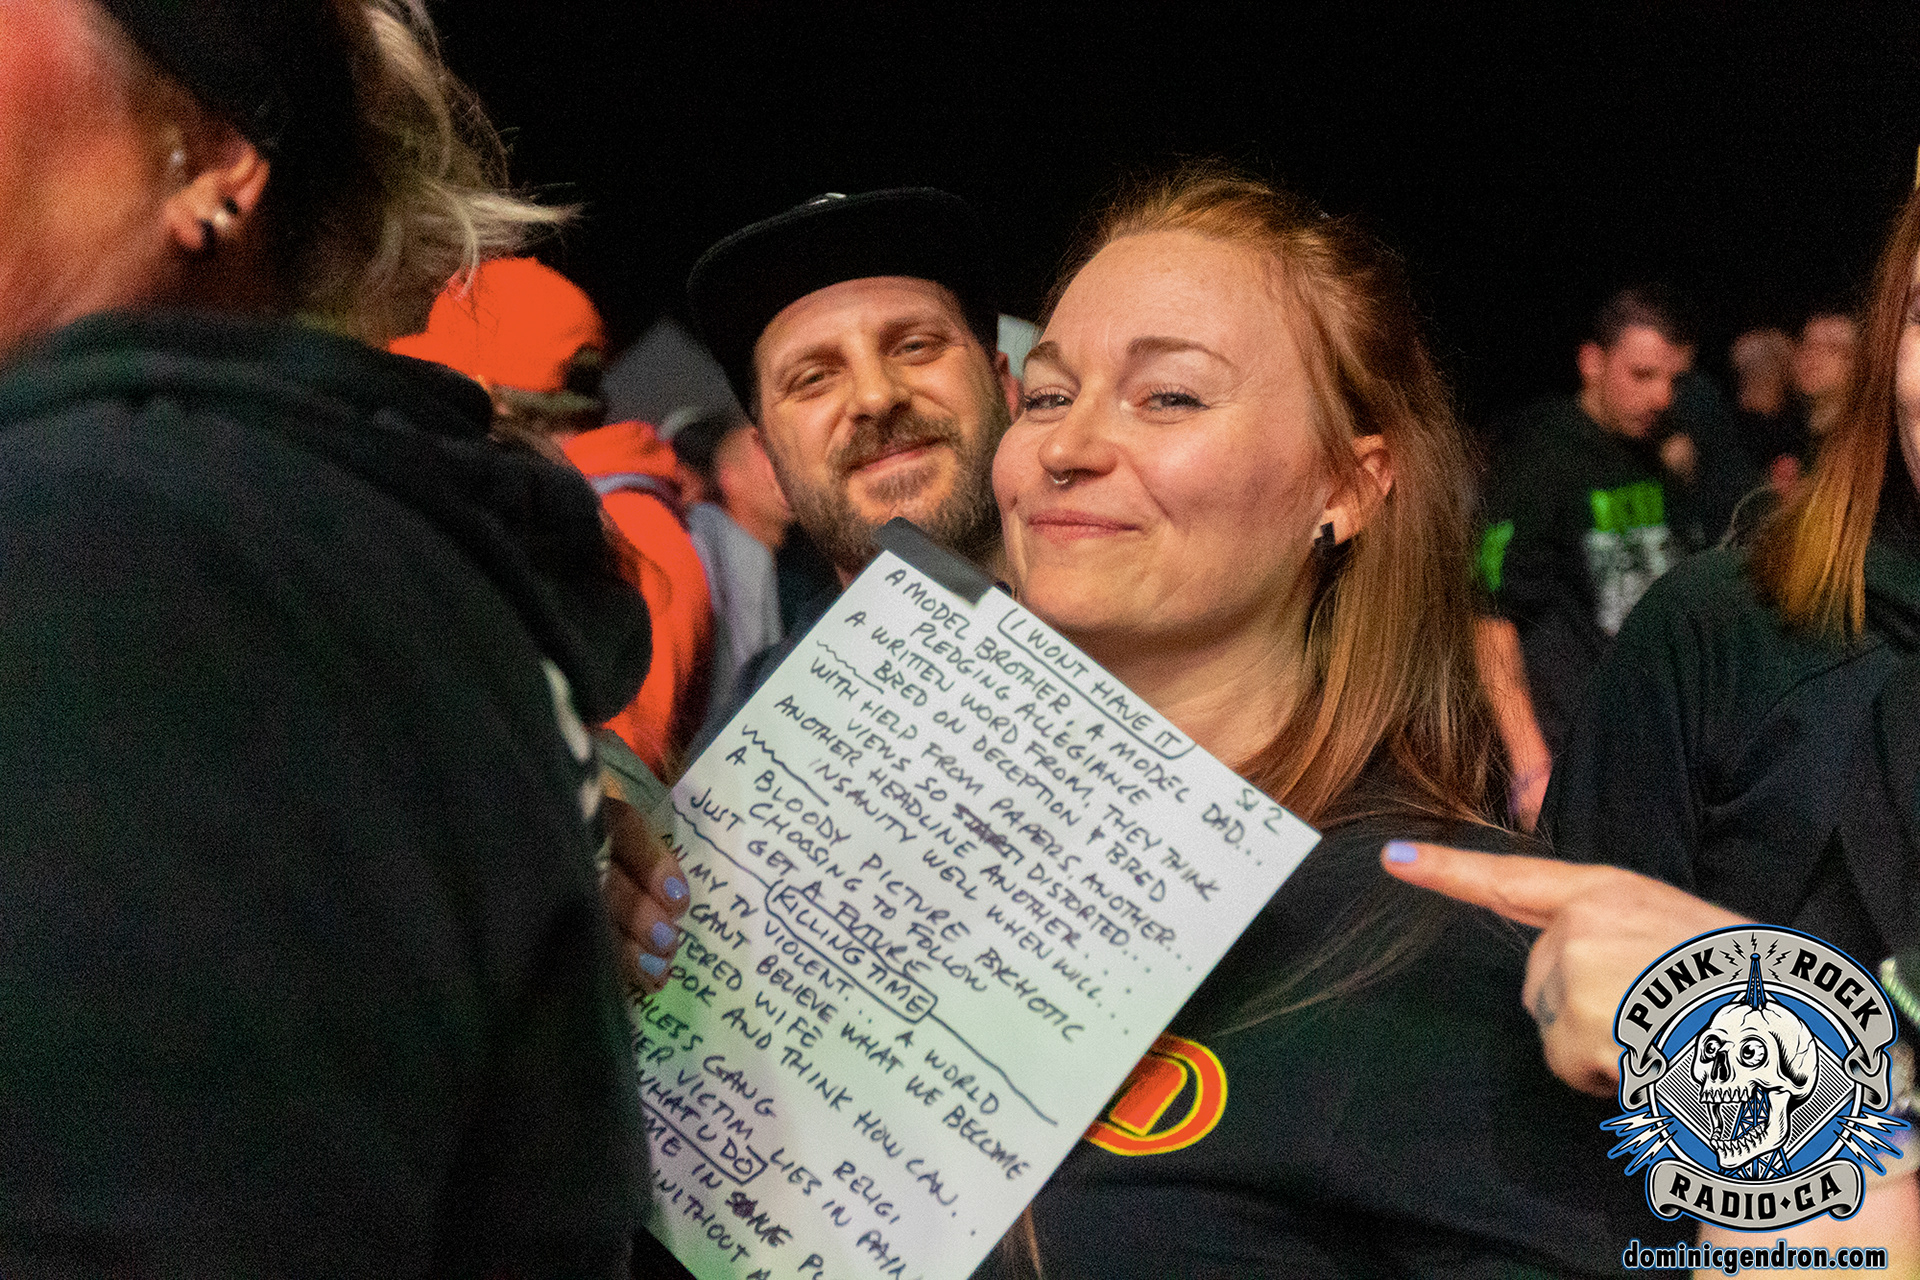 I WONT HAVE IT
A MODEL BROTHER, A MODEL DAD...
PLEDGING ALLEGIANCE
A WRITTEN WORD FROM, THEY THINK
BRED ON DECEPTION & BRED
WITH HELP FROM PAPERS. ANOTHER...
VIEWS SO DISTORTED...
ANOTHER HEADLINE ANOTHER...
INSANITY WELL WHEN WILL...
A BLOODY PICTURE PSYCHOTIC
CHOOSING TO FOLLOW
JUST GET A FUTURE
KILLING TIME
ON MY TV VIOLENT... A WORLD
CANT BELIEVE WHAT WE BECOME
TERED WIFE
OOK AND THINK HOW CAN..
THLESS GANG RELIGI
HER VICTIM LIES IN PAIN
WHAT U DO
ME IN SOME
WITHOUT A
S1 2
PUNK ROCK
RADIO CA
dominicgendron.com